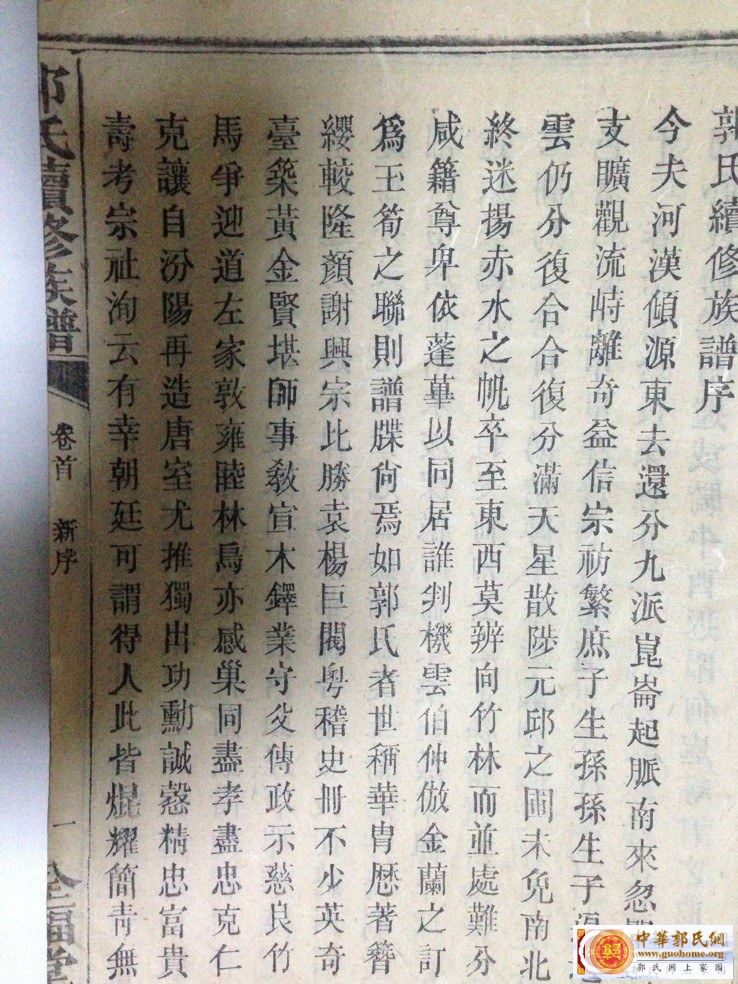 郭氏續修族譜序
今夫河漢傾源東去還分九派崑崙起脈南來忽
支曠觀流峙離奇益信宗祊繁庶子生孫孫生子
雲仍分復合合復分滿天星散陟元邱之圃未免南北
終迷揚赤水之帆卒至東西莫辨向竹林而並處難分
咸籍尊卑依蓬蓽以同居誰判機雲伯仲倣金蘭之訂
為玉筍之聯則譜牒尚焉如郭氏者世稱華胄歷著簪
纓較隆顏謝興宗比勝袁楊巨閥粵稽史冊不少英奇
臺築黃金賢堪師事教宣木鐸業守父傳政示慈良竹
馬爭迎道左家敦雍睦林烏亦感巢同盡孝盡忠克仁
克讓自汾陽再造唐室尤推獨出功勳誠慤精忠富貴
壽考宗祉洵云有幸朝廷可謂得人此皆焜耀簡青無
郭氏續修族譜
卷首 新序
一
全福堂
中華郭氏網
www.guohome.org
郭氏網上家園